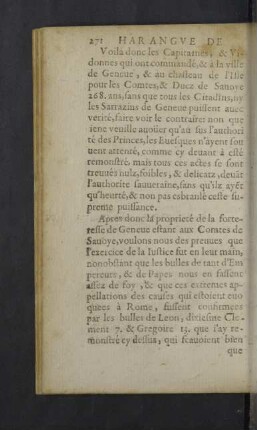 272 HARANGVE DE
Voila donc les Capitaines, & Vi-
donnes qui ont commandé, & à la ville
de Geneue, & au chasteau de l'Isle
pour les Comtes, & Ducz de Sauoye
268. ans, sans que tous les Citadins, ny
les Sarrazins de Geneue puissent auec
verité, faire voir le contraire: non que
ie ne veuille auoüer qu'aas sus l'authori
té des Princes, les Euesques n'ayent sou
uent attenté, comme cy deuant a esté
remonstré mais tous ces actes se sont
treuués nulz, foibles, & delicatz, deuāt
l'authorité sauueraine, sans qu'ils ayēt
qu'heurté, & non pas esbranlé ceste su-
preme puissance.
Apres donc la proprieté de la forte-
resse de Geneue estant aux Comtes de
Sauoye, voulons nous des preuues que
l'exercice de la Iustice fut en leur main,
nonobstant que les bulles de tant d'Em
pereurs, & de Papes nous en fassent
assés de foy, & que ces extremes ap-
pellations des causes qui estoient euo
quees à Rome, fussent confirmees
par les bulles de Leon, dixiesme Cle-
ment 7. & Gregoire 13. que i'ay re-
monstré cy dessus, qui sçauoient bien
que